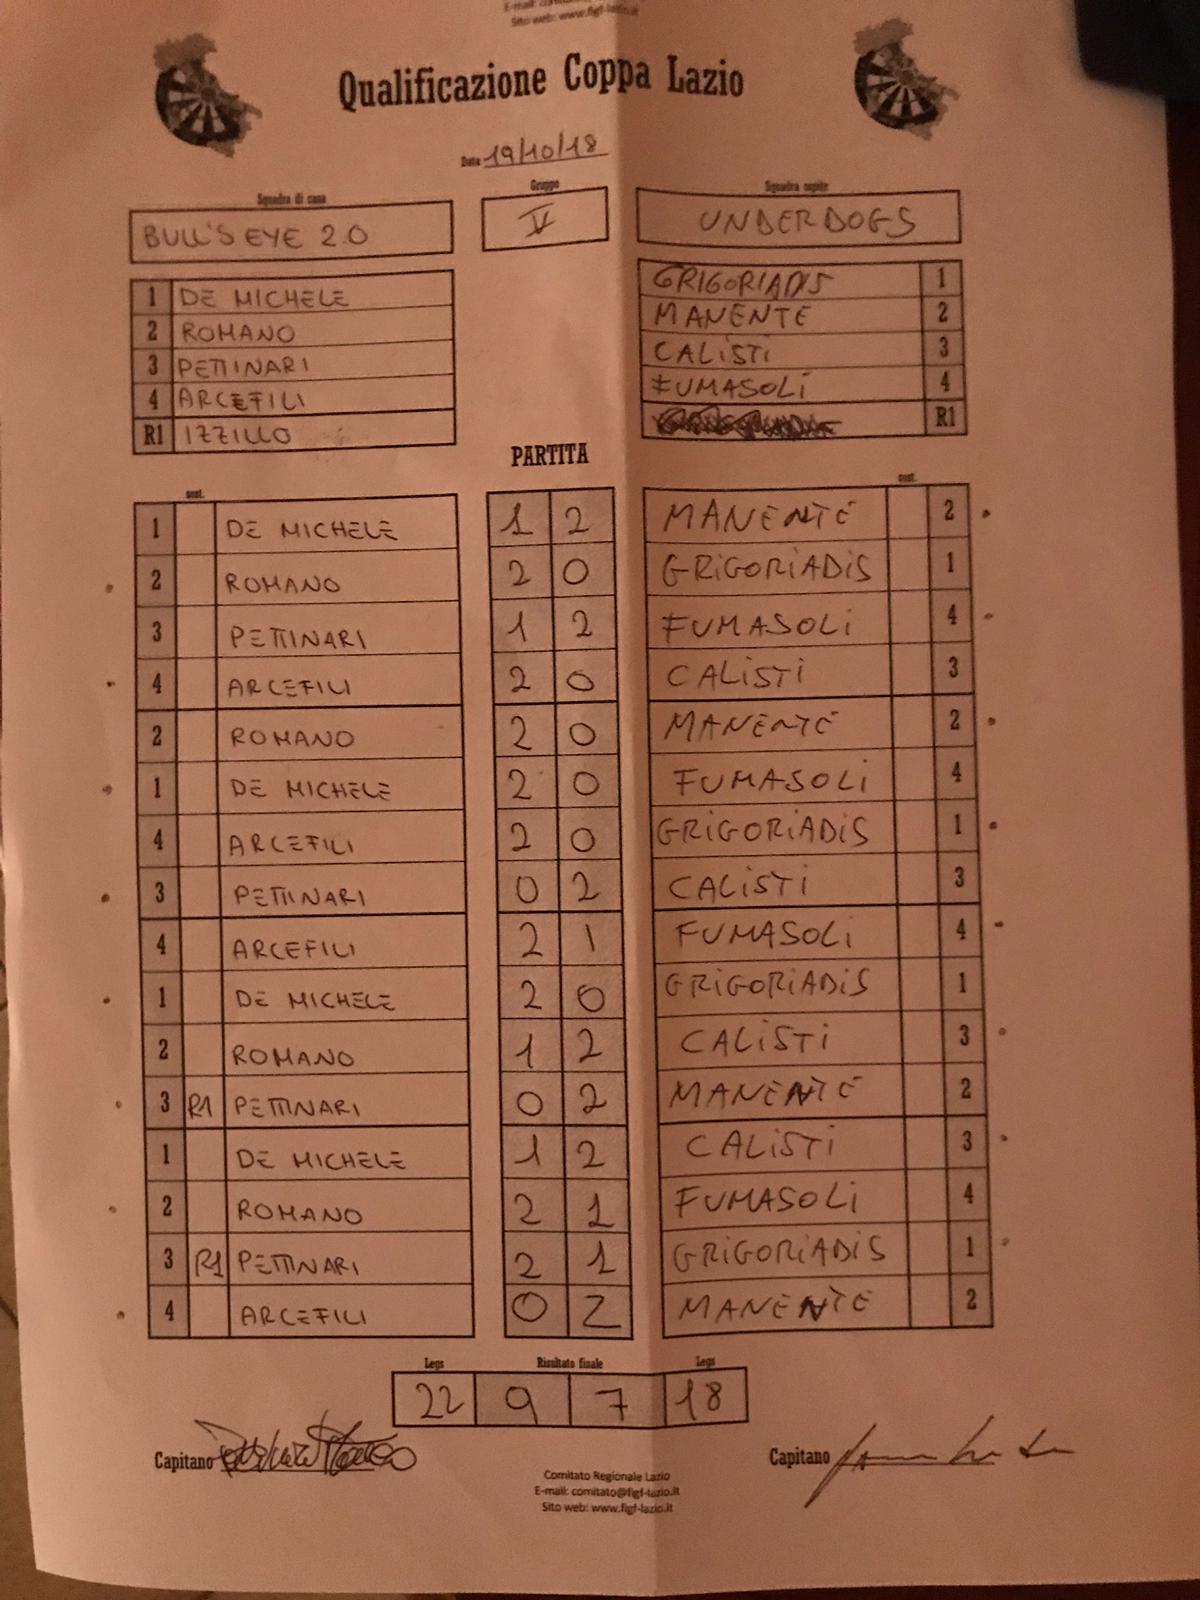 Sito web: www.figf-lazio.it
Qualificazione Coppa Lazio
Data 19/10/18
Squadra di casa Gruppo Squadra ospite
BULL'S EYE 2.0 V UNDERDOGS
1 DE MICHELE GRIGORIADIS 1
2 ROMANO MANENTE 2
3 PETTINARI CALISTI 3
4 ARCEFILI FUMASOLI 4
R1 IZZILLO R1
PARTITA
sost. sost.
1 DE MICHELE 1 2 MANENTE 2
2 ROMANO 2 0 GRIGORIADIS 1
3 PETTINARI 1 2 FUMASOLI 4
4 ARCEFILI 2 0 CALISTI 3
2 ROMANO 2 0 MANENTE 2
1 DE MICHELE 2 0 FUMASOLI 4
4 ARCEFILI 2 0 GRIGORIADIS 1
3 PETTINARI 0 2 CALISTI 3
4 ARCEFILI 2 1 FUMASOLI 4
1 DE MICHELE 2 0 GRIGORIADIS 1
2 ROMANO 1 2 CALISTI 3
3 R1 PETTINARI 0 2 MANENTE 2
1 DE MICHELE 1 2 CALISTI 3
2 ROMANO 2 1 FUMASOLI 4
3 R1 PETTINARI 2 1 GRIGORIADIS 1
4 ARCEFILI 0 2 MANENTE 2
Legs Risultato finale Legs
22 9 7 18
Capitano Capitano
Comitato Regionale Lazio
E-mail: comitato@figf-lazio.it
Sito web: www.figf-lazio.it